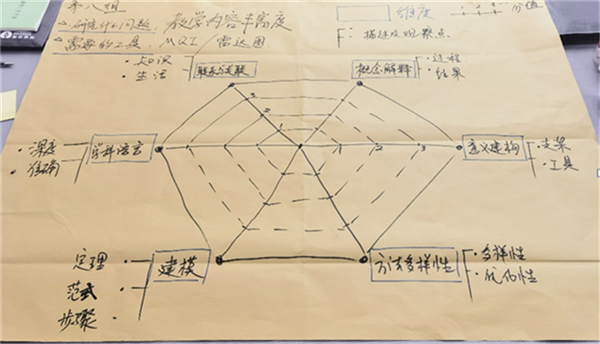 第八组
研究的问题：教学内容丰富度
需要的工具：MQI 雷达图
维度
分值
F：描述及观察点
知识
生活
联系与关联
概念解释
过程
结果
深度
准确
学科语言
1 2 3
意义建构
支架
工具
定理
范式
步骤
建模
方法多样性
多样性
优化性